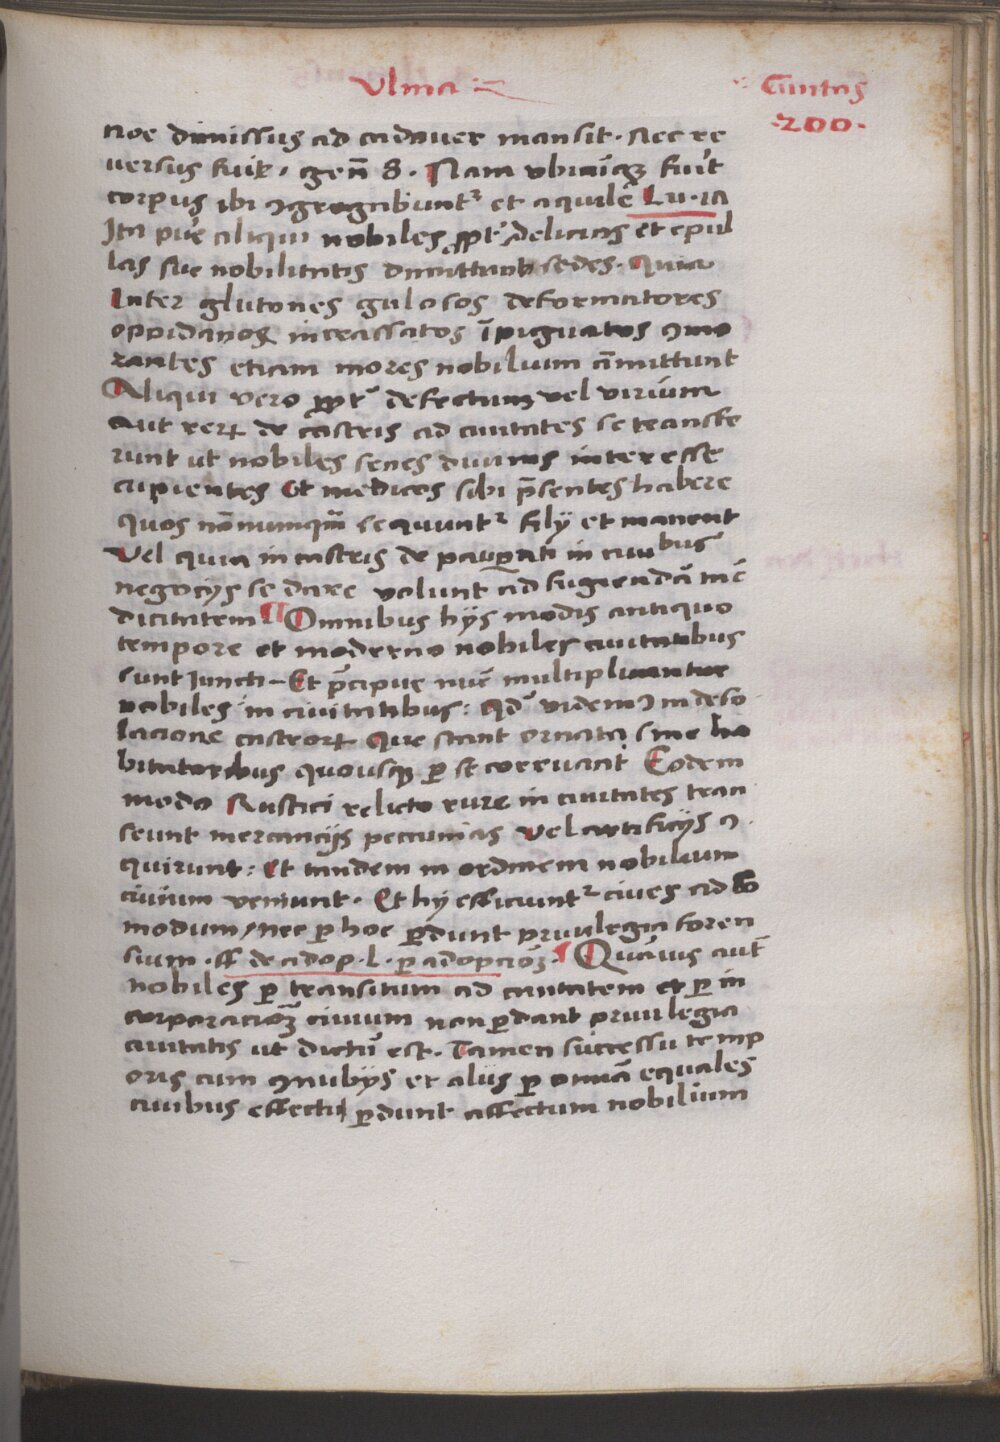 Vlma
Ciuitas
·200·
noe dimissus ad cadauer mansit. Nec re
uersus fuit. gen̄ 8. Nam vbicūqꝫ fuīt
corpus ibi ꝯgregabuntᷣ et aquile Lu. 17
Ita pūe aliqui nobiles ꝓptᷣ delicias et epul
las sue nobilitatis dimittunt sedes. Quia
Inter glutones gulosos deformatores
oppidanoꝝ incrassatos īpignatos ꝯmo
rantes etiam mores nobilium āmittunt
Aliqui vero ꝓptᷣ defectum vel virium
Aut reꝝ de castris ad ciuitates se transfe
runt ut nobiles senes diuinis interesse
cupientes Et medicos sibi p̄sentes habere
quos nōnumqm̄ sequuntᷣ filij et manent
Vel quia in castris de paupᷓtati in ciuibus
negocijs se dare volunt ad fugiendā mē
dicitatem ¶ Omnibus hijs modis antiquo
tempore et moderno nobiles ciuitatibus
sunt Iuncti – Et p̄cipue nūc multiplicantur
nobiles in ciuitatibus: qd̄ videmꝰ in deso
lacione castroꝝ Que stant ornata sine ha
bitatoribus quousqꝫ ꝑ se corruant Eodem
modo Rustici relicto rure in ciuitates tran
seunt mercancijs peccunias vel artificijs ꝯ
quirunt: Et tandem in ordinem nobilium
ciuium veniunt. Et hij efficiuntᷣ ciues ad
modum / nec ꝑ hoc ꝑdunt priuilegia foren
sium . ff de adop. l. ꝑ adopcioꝫ. ¶ Quāuis aut̄
nobiles ꝑ transitum ad ciuitatem et ꝑ in
corporacioꝫ ciuium non ꝑdant priuilegia
ciuitatis ut dictū est. Tamen successu temp
oris cum ꝯnubijs et alijs ꝑ omīa equales
ciuibus effecti ꝑdunt affectum nobilium